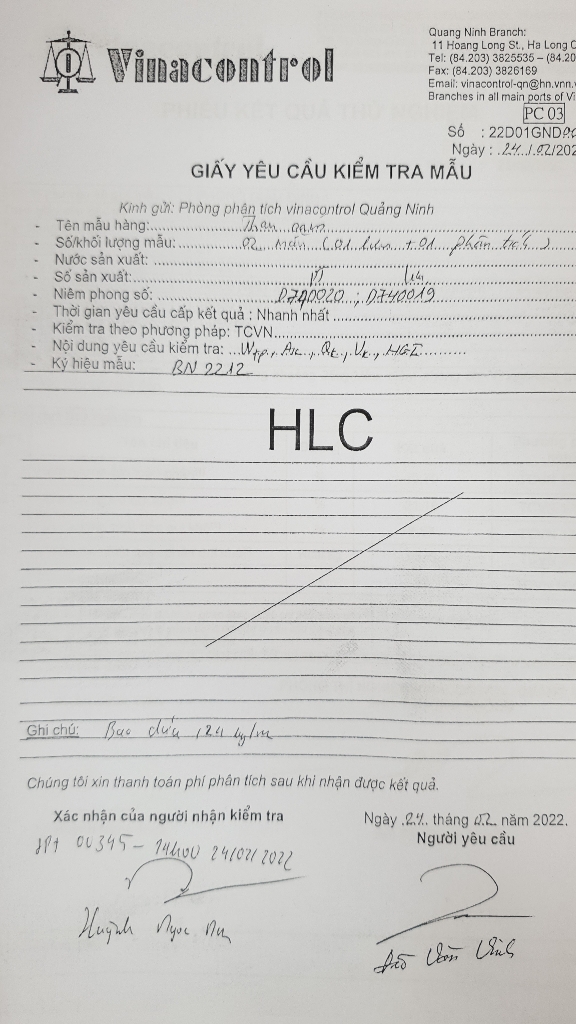 Vinacontrol
Quang Ninh Branch:
11 Hoang Long St., Ha Long C
Tel: (84.203) 3825535 – (84.20
Fax: (84.203) 3826169
Email: vinacontrol-qn@hn.vnn.v
Branches in all main ports of Vi
PC 03
Số : 22D01GND
Ngày : 24/02/202
GIẤY YÊU CẦU KIỂM TRA MẪU
Kính gửi: Phòng phân tích vinacontrol Quảng Ninh
- Tên mẫu hàng: Than
- Số/khối lượng mẫu: 02 mẫu (01 lưu + 01 phân tích)
- Nước sản xuất:
- Số sản xuất:
- Niêm phong số: D740020 ; D740019
- Thời gian yêu cầu cấp kết quả : Nhanh nhất
- Kiểm tra theo phương pháp: TCVN
- Nội dung yêu cầu kiểm tra: Wtp, Ak, Qk, Vk, HGI
- Ký hiệu mẫu: BN 2212
HLC
Ghi chú: Bao dứa, 24 kg/m
Chúng tôi xin thanh toán phí phân tích sau khi nhận được kết quả.
Xác nhận của người nhận kiểm tra
Ngày 24 tháng 02 năm 2022.
Người yêu cầu
00345 - 14h00 24/02/2022
Huỳnh Ngọc
Văn Vinh